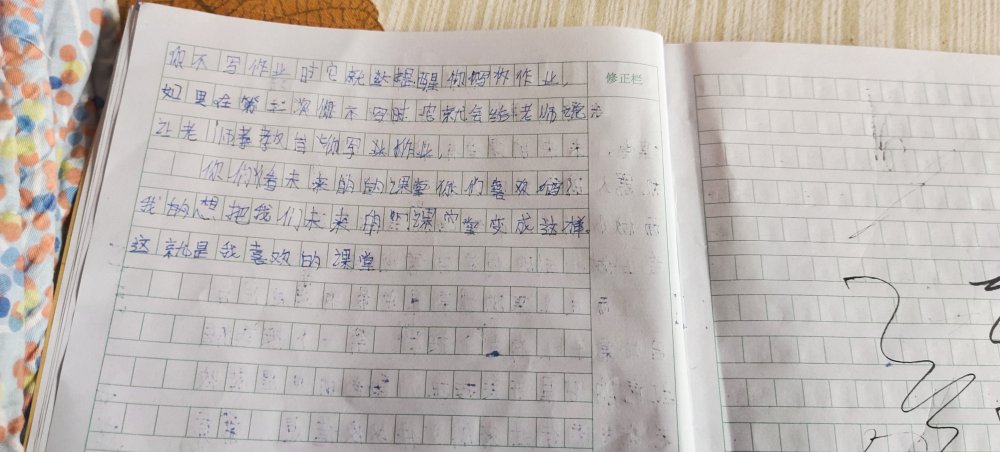 你不写作业时它就会提醒你写作业，
修正栏
如果在第二次你不写时它就会给老师
让老师来教育你写作业。
你们看未来的课堂你们喜欢吗？
我的想把我们未来的课堂变成这样。
这就是我喜欢的课堂